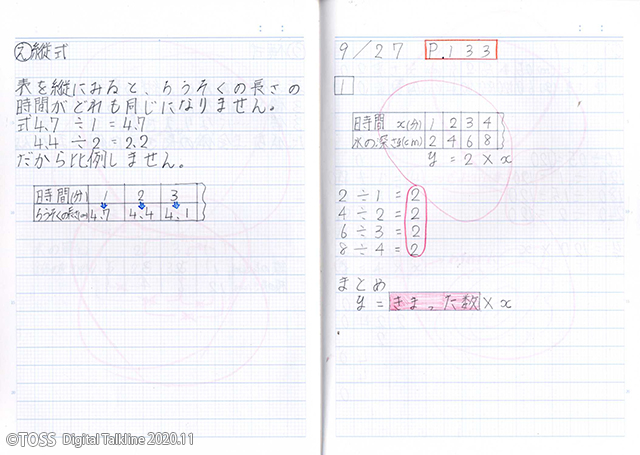 え縦式
表を縦にみると、ろうそくの長さの
時間がどれも同じになりません。
式4.7 ÷ 1 = 4.7
4.4 ÷ 2 = 2.2
だから比例しません。
時間(分) 1 2 3
ろうそくの長さ(cm) 4.7 4.4 4.1
9/27 P.133
1
時間 x(分) 1 2 3 4
水の深さ(cm) 2 4 6 8
y = 2 × x
2 ÷ 1 = 2
4 ÷ 2 = 2
6 ÷ 3 = 2
8 ÷ 4 = 2
まとめ
y = きまった数 × x
©TOSS Digital Talkline 2020.11